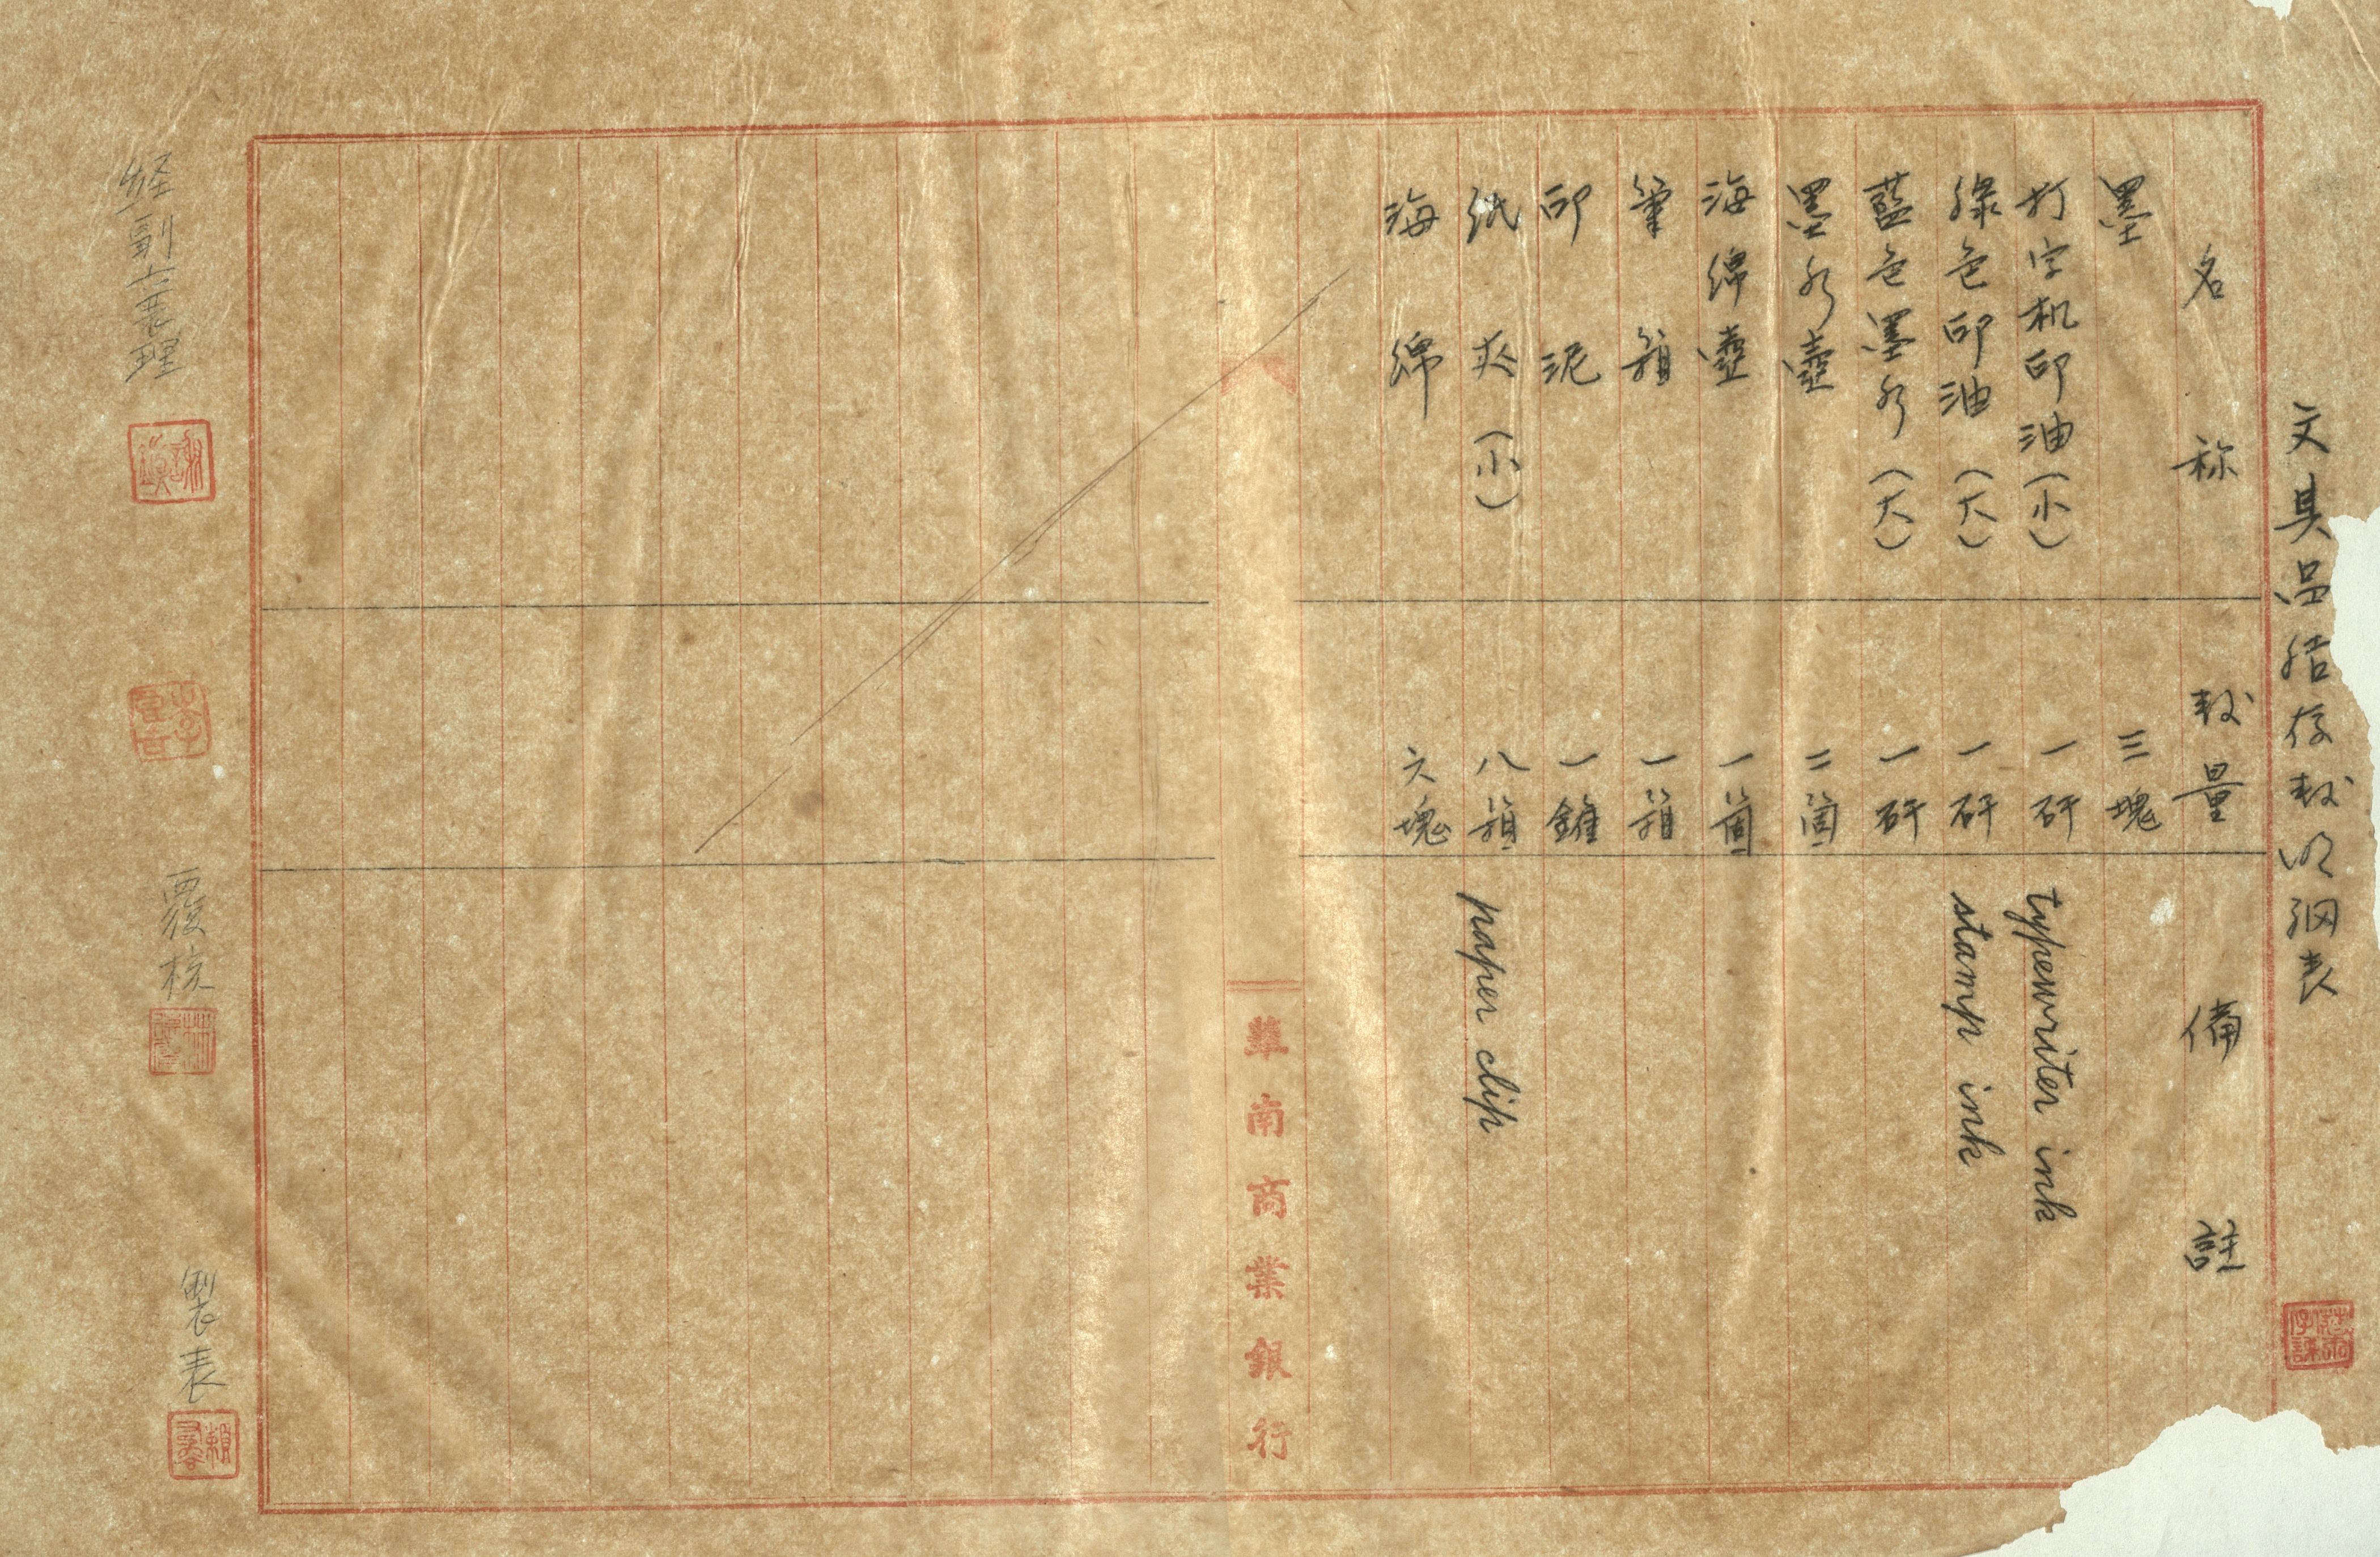 文具品结存数明细表
名称 数量 備註
墨 三塊
打字机印油(小) 一矸 typewriter ink
綠色印油(大) 一矸 stamp ink
藍色墨水(大) 一矸
墨水壺 二箇
海綿壺 一箇
筆 一箱
印泥
紙夾(小) 八箱 paper clip
海綿 六塊
華南商業銀行
覆核
製表
賴